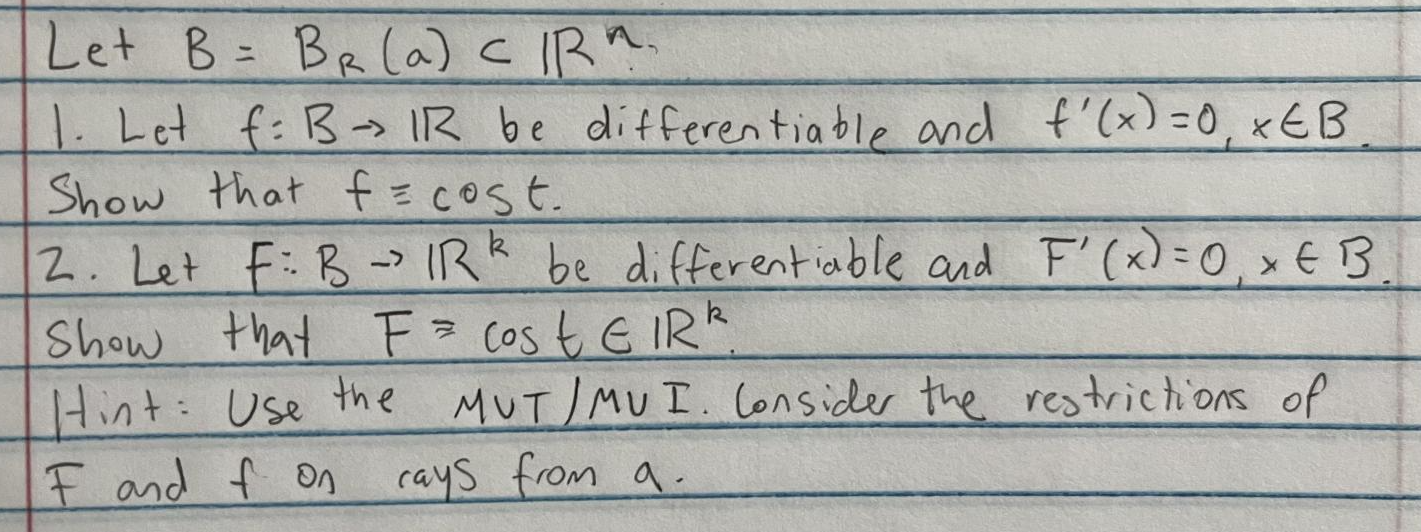 Let B = B_R (a) ⊂ ℝⁿ.
1. Let f: B → ℝ be differentiable and f'(x) = 0, x ∈ B.
Show that f ≡ cost.
2. Let F: B → ℝᵏ be differentiable and F'(x) = 0, x ∈ B.
Show that F ≡ cost ∈ ℝᵏ.
Hint: Use the MVT/MVI. Consider the restrictions of
F and f on rays from a.